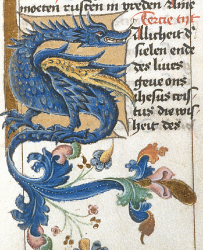 moeten rusten in vreden Ame
Tercie tyt
Alurheit d
sielen ende
des liues
geue ons
ihesus cris
tus die wys
heit des